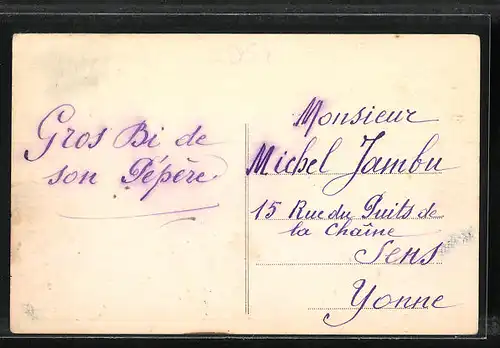 Gros Bi de
son Pépère
Monsieur
Michel Jambu
15 Rue du Puits de
la Chaîne
Sens
Yonne